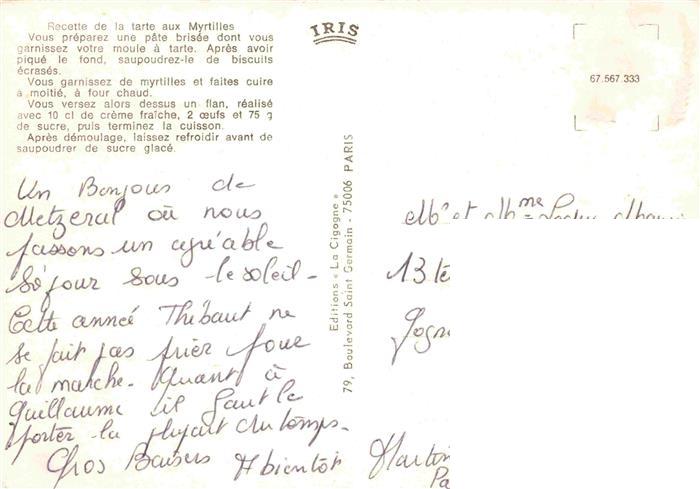 Recette de la tarte aux Myrtilles
Vous préparez une pâte brisée dont vous
garnissez votre moule à tarte. Après avoir
piqué le fond, saupoudrez-le de biscuits
écrasés.
Vous garnissez de myrtilles et faites cuire
à moitié, à four chaud.
Vous versez alors dessus un flan, réalisé
avec 10 cl de crème fraîche, 2 œufs et 75 g
de sucre, puis terminez la cuisson.
Après démoulage, laissez refroidir avant de
saupoudrer de sucre glacé.
IRIS
67.567.333
Editions « La Cigogne »
79, Boulevard Saint Germain - 75006 PARIS
Un Bonjour de
Metzeral où nous
passons un agréable
séjour sous le soleil -
Cette année Thibaut ne
se fait pas prier pour
la marche. Quant à
Guillaume il faut le
porter la plupart du temps.
Gros Baisers A bientôt
Mr et Mme
13 te
Martin
Pa